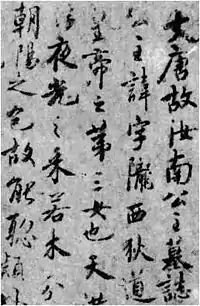 大唐故汝南公主墓誌
公主諱字隴西狄道
皇帝之第三女也天
浮夜光之采若木分
朝陽之色故能聡穎